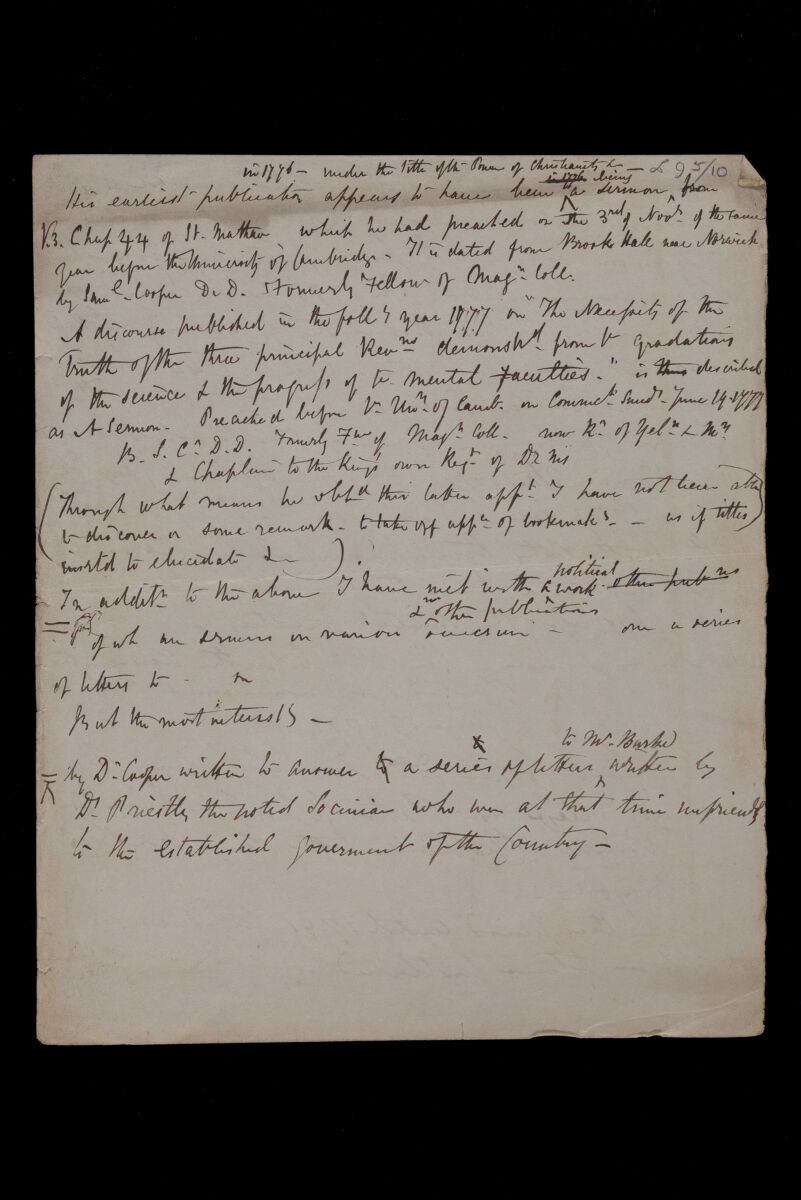 in 1776 – under the Title of the Power of Christianity &c – £ 95/10
His earliest publication appears to have been in 1776 being a Sermon from
V.3. Chap 44 of St. Mathew which he had preached on the 3rd of Novr. of the same
year before the University of Cambridge – It is dated from Brooke Hall near Norwich
by Saml. Cooper D.D. Formerly Fellow of Magn. Coll.
A discourse published in the follg year 1777 on "The Necessity of the
Truth of the three principal Revns demonstrd. from ye gradations
of the science & the progress of ye mental faculties." is thus described
as A Sermon – Preached before ye Uny. of Camb. on Commct. Sund. June 29. 1777
B. S. Cr. D.D. Formerly Fw of Magn. Coll. now Rr. of Yeln. & My.
& Chaplain to the King's own Regt. of Drs
(Through what means he obtd this latter appt. I have not been able
to discover or some remark – to take off appce of bookmakg. – as if titles
insertd to elucidate & – ).
In additn. to the above I have met with a political work other pubns
& other publications
of wh are sermons on various occasions – one a series
of letters to – on
But the most interestg –
by Dr. Cooper written to answer to a series of letters written to Mr. Burke by
Dr Priestly the noted Socinian who was at that time unfriendly
to the established goverment of the Country –